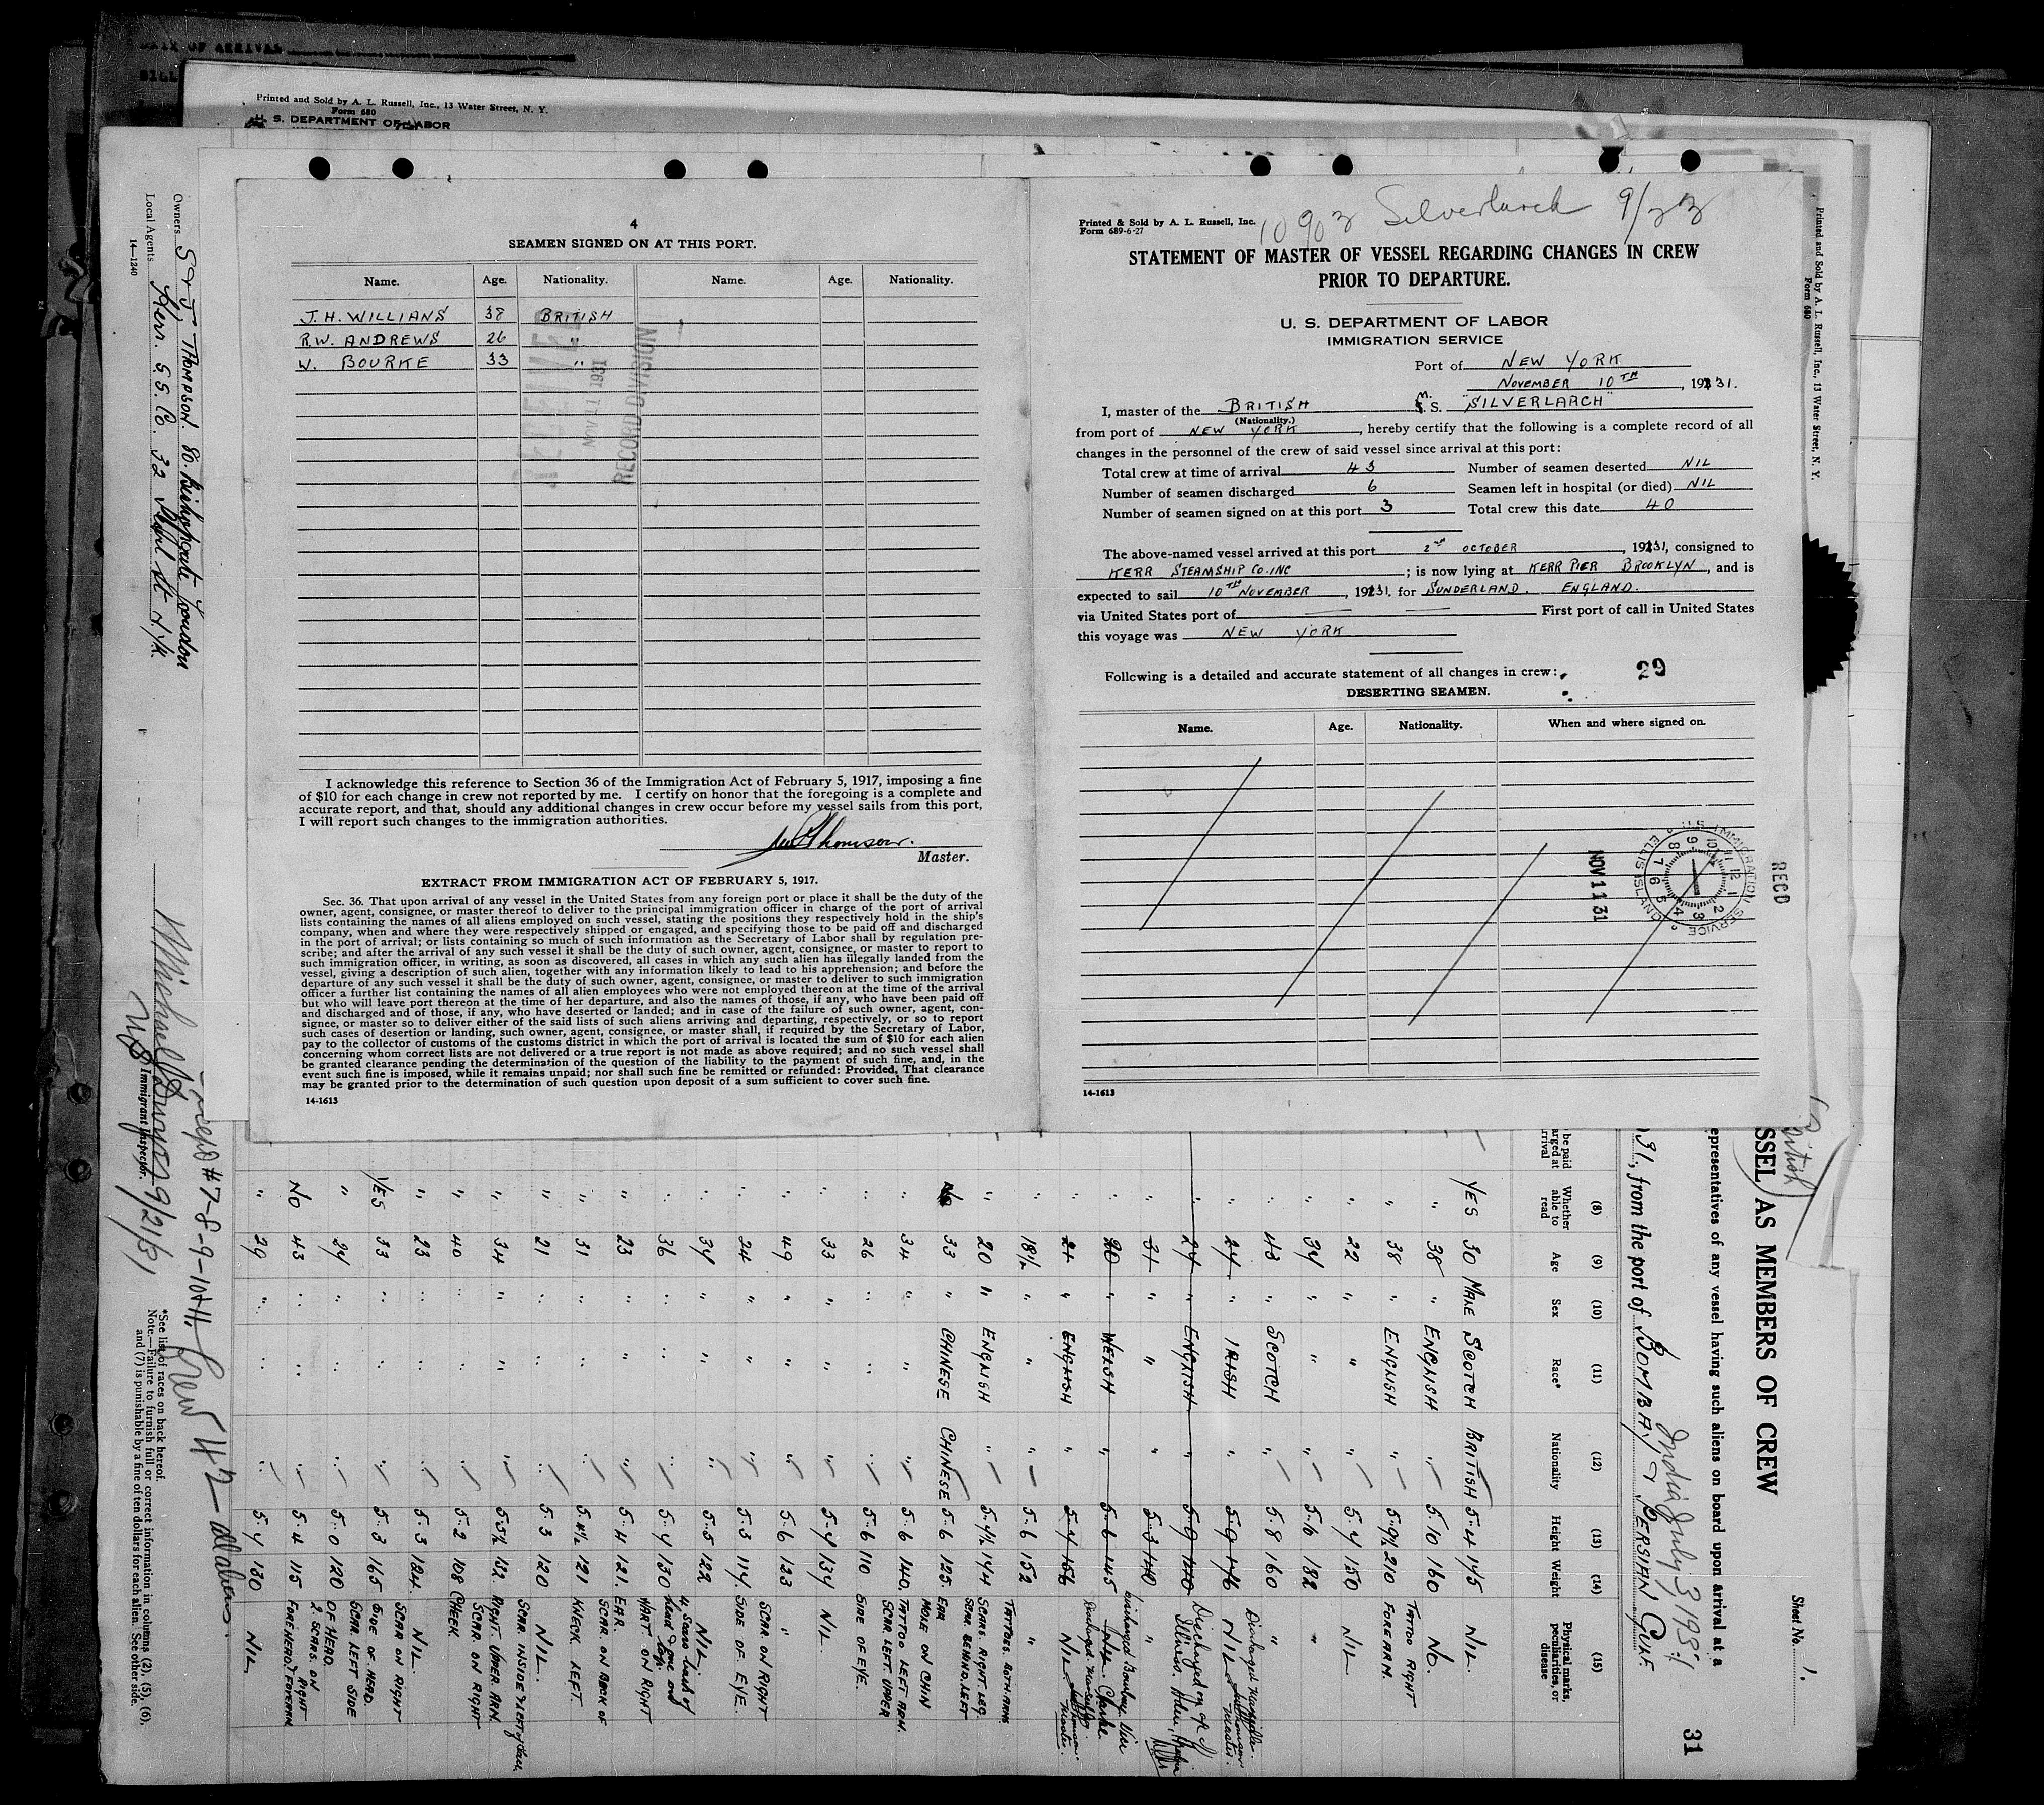 DATE OF ARRIVAL
Printed and Sold by A. L. Russell, Inc., 13 Water Street, N. Y.
Form 680
U. S. DEPARTMENT OF LABOR
4
SEAMEN SIGNED ON AT THIS PORT.
Name. Age. Nationality. Name. Age. Nationality.
J. H. WILLIANS 38 BRITISH
R.W. ANDREWS 26 "
W. BOURKE 33 "
RECEIVED
NOV 11 1931
RECORD DIVISION
I acknowledge this reference to Section 36 of the Immigration Act of February 5, 1917, imposing a fine
of $10 for each change in crew not reported by me. I certify on honor that the foregoing is a complete and
accurate report, and that, should any additional changes in crew occur before my vessel sails from this port,
I will report such changes to the immigration authorities.
Thomson.
Master.
EXTRACT FROM IMMIGRATION ACT OF FEBRUARY 5, 1917.
Sec. 36. That upon arrival of any vessel in the United States from any foreign port or place it shall be the duty of the
owner, agent, consignee, or master thereof to deliver to the principal immigration officer in charge of the port of arrival
lists containing the names of all aliens employed on such vessel, stating the positions they respectively hold in the ship's
company, when and where they were respectively shipped or engaged, and specifying those to be paid off and discharged
in the port of arrival; or lists containing so much of such information as the Secretary of Labor shall by regulation pre-
scribe; and after the arrival of any such vessel it shall be the duty of such owner, agent, consignee, or master to report to
such immigration officer, in writing, as soon as discovered, all cases in which any such alien has illegally landed from the
vessel, giving a description of such alien, together with any information likely to lead to his apprehension; and before the
departure of any such vessel it shall be the duty of such owner, agent, consignee, or master to deliver to such immigration
officer a further list containing the names of all alien employees who were not employed thereon at the time of the arrival
but who will leave port thereon at the time of her departure, and also the names of those, if any, who have been paid off
and discharged and of those, if any, who have deserted or landed; and in case of the failure of such owner, agent, con-
signee, or master so to deliver either of the said lists of such aliens arriving and departing, respectively, or so to report
such cases of desertion or landing, such owner, agent, consignee, or master shall, if required by the Secretary of Labor,
pay to the collector of customs of the customs district in which the port of arrival is located the sum of $10 for each alien
concerning whom correct lists are not delivered or a true report is not made as above required; and no such vessel shall
be granted clearance pending the determination of the question of the liability to the payment of such fine, and, in the
event such fine is imposed, while it remains unpaid; nor shall such fine be remitted or refunded: Provided, That clearance
may be granted prior to the determination of such question upon deposit of a sum sufficient to cover such fine.
14-1613
Printed & Sold by A. L. Russell, Inc.
Form 689-6-27
Silverlarch
STATEMENT OF MASTER OF VESSEL REGARDING CHANGES IN CREW
PRIOR TO DEPARTURE.
U. S. DEPARTMENT OF LABOR
IMMIGRATION SERVICE
Port of NEW YORK
NOVEMBER 10TH, 1931.
I, master of the BRITISH M. S. "SILVERLARCH"
(Nationality.)
from port of NEW YORK, hereby certify that the following is a complete record of all
changes in the personnel of the crew of said vessel since arrival at this port:
Total crew at time of arrival 43 Number of seamen deserted NIL
Number of seamen discharged 6 Seamen left in hospital (or died) NIL
Number of seamen signed on at this port 3 Total crew this date 40
The above-named vessel arrived at this port 2nd OCTOBER, 1931, consigned to
KERR STEAMSHIP CO. INC; is now lying at KERR PIER BROOKLYN, and is
expected to sail 10TH NOVEMBER, 1931. for SUNDERLAND. ENGLAND.
via United States port of First port of call in United States
this voyage was NEW YORK
Following is a detailed and accurate statement of all changes in crew:
29
DESERTING SEAMEN.
Name. Age. Nationality. When and where signed on.
U.S. IMMIGRATION SERVICE ELLIS ISLAND
RECD
NOV 11 31
14-1613
Printed and Sold by A. L. Russell, Inc., 13 Water Street, N. Y.
Form 680
Owners S & J THOMPSON. 80. Bishopsgate London
Local Agents Kerr. S.S. Co. 32 Pearl St N.Yk.
14-1240
Immigrant Inspector.
#7-8-9-10+11. Crew 42 - all aliens.
*See list of races on back hereof.
Note.—Failure to furnish full or correct information in columns (2), (5), (6),
and (7) is punishable by a fine of ten dollars for each alien. See other side.
Sheet No. 1.
31
SSEL) AS MEMBERS OF CREW
British
epresentatives of any vessel having such aliens on board upon arrival at a
India July 3 1931
31, from the port of BOMBAY & PERSIAN GULF
(8) (9) (10) (11) (12) (13) (14) (15)
Whether able to read Age Sex Race* Nationality Height Weight Physical marks, peculiarities, or disease
YES 30 MALE SCOTCH BRITISH 5.4 145 NIL.
" 38 " ENGLISH " 5.10 160 NO.
" 38 " ENGLISH " 5.9½ 210 TATTOO RIGHT FOREARM.
" 22 " " " 5.4 150 NIL
" 34 " " " 5.10 182 "
" 43 " SCOTCH " 5.8 160 "
" 24 " IRISH " 5.9 146 NIL Discharged
" 24 " ENGLISH " 5.9 140 Discharged
" 31 " " " 5.3 140 "
" 20 " WELSH " 5.6 145
" 21 " ENGLISH " 5.4 156 NIL
" 18½ " " " 5.6 152 TATTOES. BOTH ARMS
" 20 " ENGLISH " 5.4½ 144 SCARS. RIGHT. LEG.
NO 33 " CHINESE CHINESE 5.6 125. MOLE ON CHIN
" 34 " " " 5.6 140. TATTOO LEFT ARM.
" 26 " " " 5.6 110
" 33 " " " 5.4 134 NIL.
" 49 " " " 5.6 123 "
" 24 " " " 5.3 114. SCAR ON RIGHT SIDE OF. EYE.
" 34 " " " 5.5 122 NIL
" 36 " " " 5.4 130
" 23 " " " 5.4 121.
" 31 " " " 5.4½ 121
" 21 " " " 5.3 120 NIL.
" 34 " " " 5.5½ 132.
" 40 " " " 5.2 108 SCAR. ON RIGHT CHEEK.
" 23 " " " 5.3 124. NIL.
YES 33 " " " 5.3 165 SCAR ON RIGHT SIDE OF HEAD.
" 24 " " " 5.0 120 SCAR LEFT SIDE OF HEAD.
NO 43 " " " 5.4 115 2. SCARS. ON
" 29 " " " 5.4 130 NIL